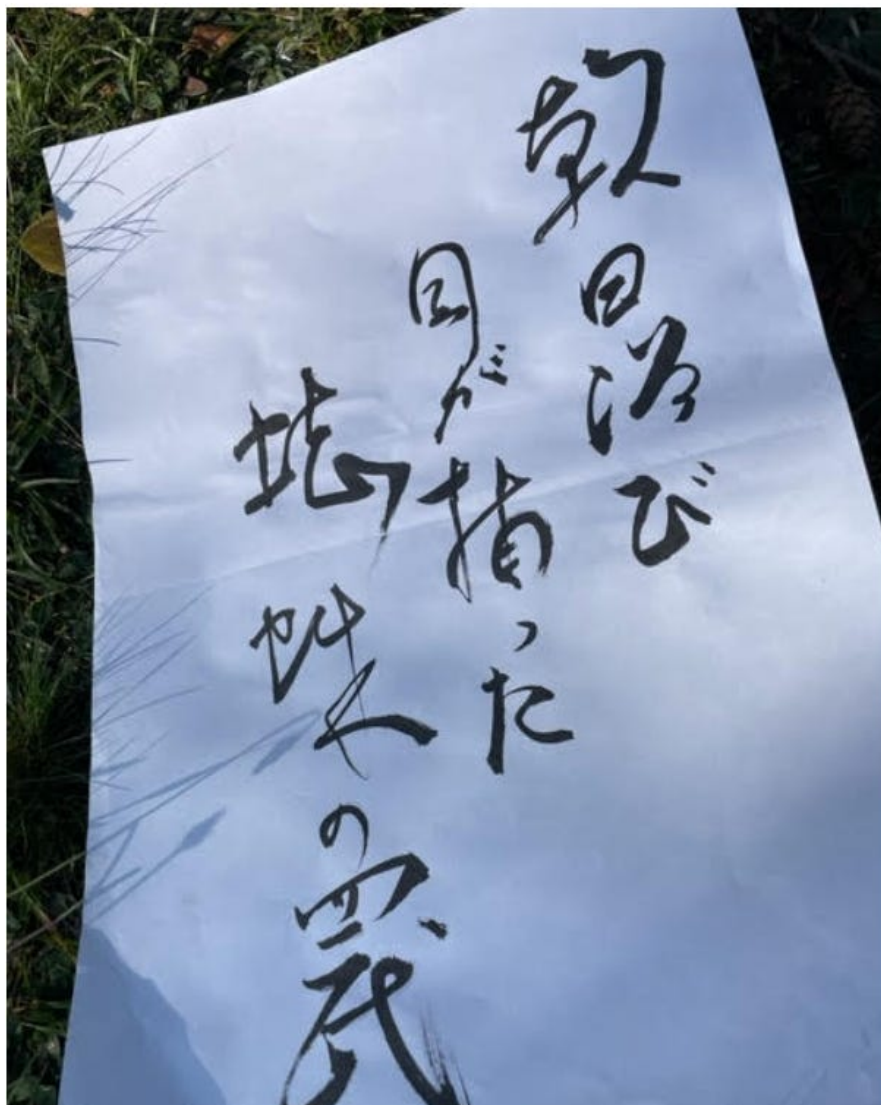 朝日浴び
目が捕った
蜘蛛の罠